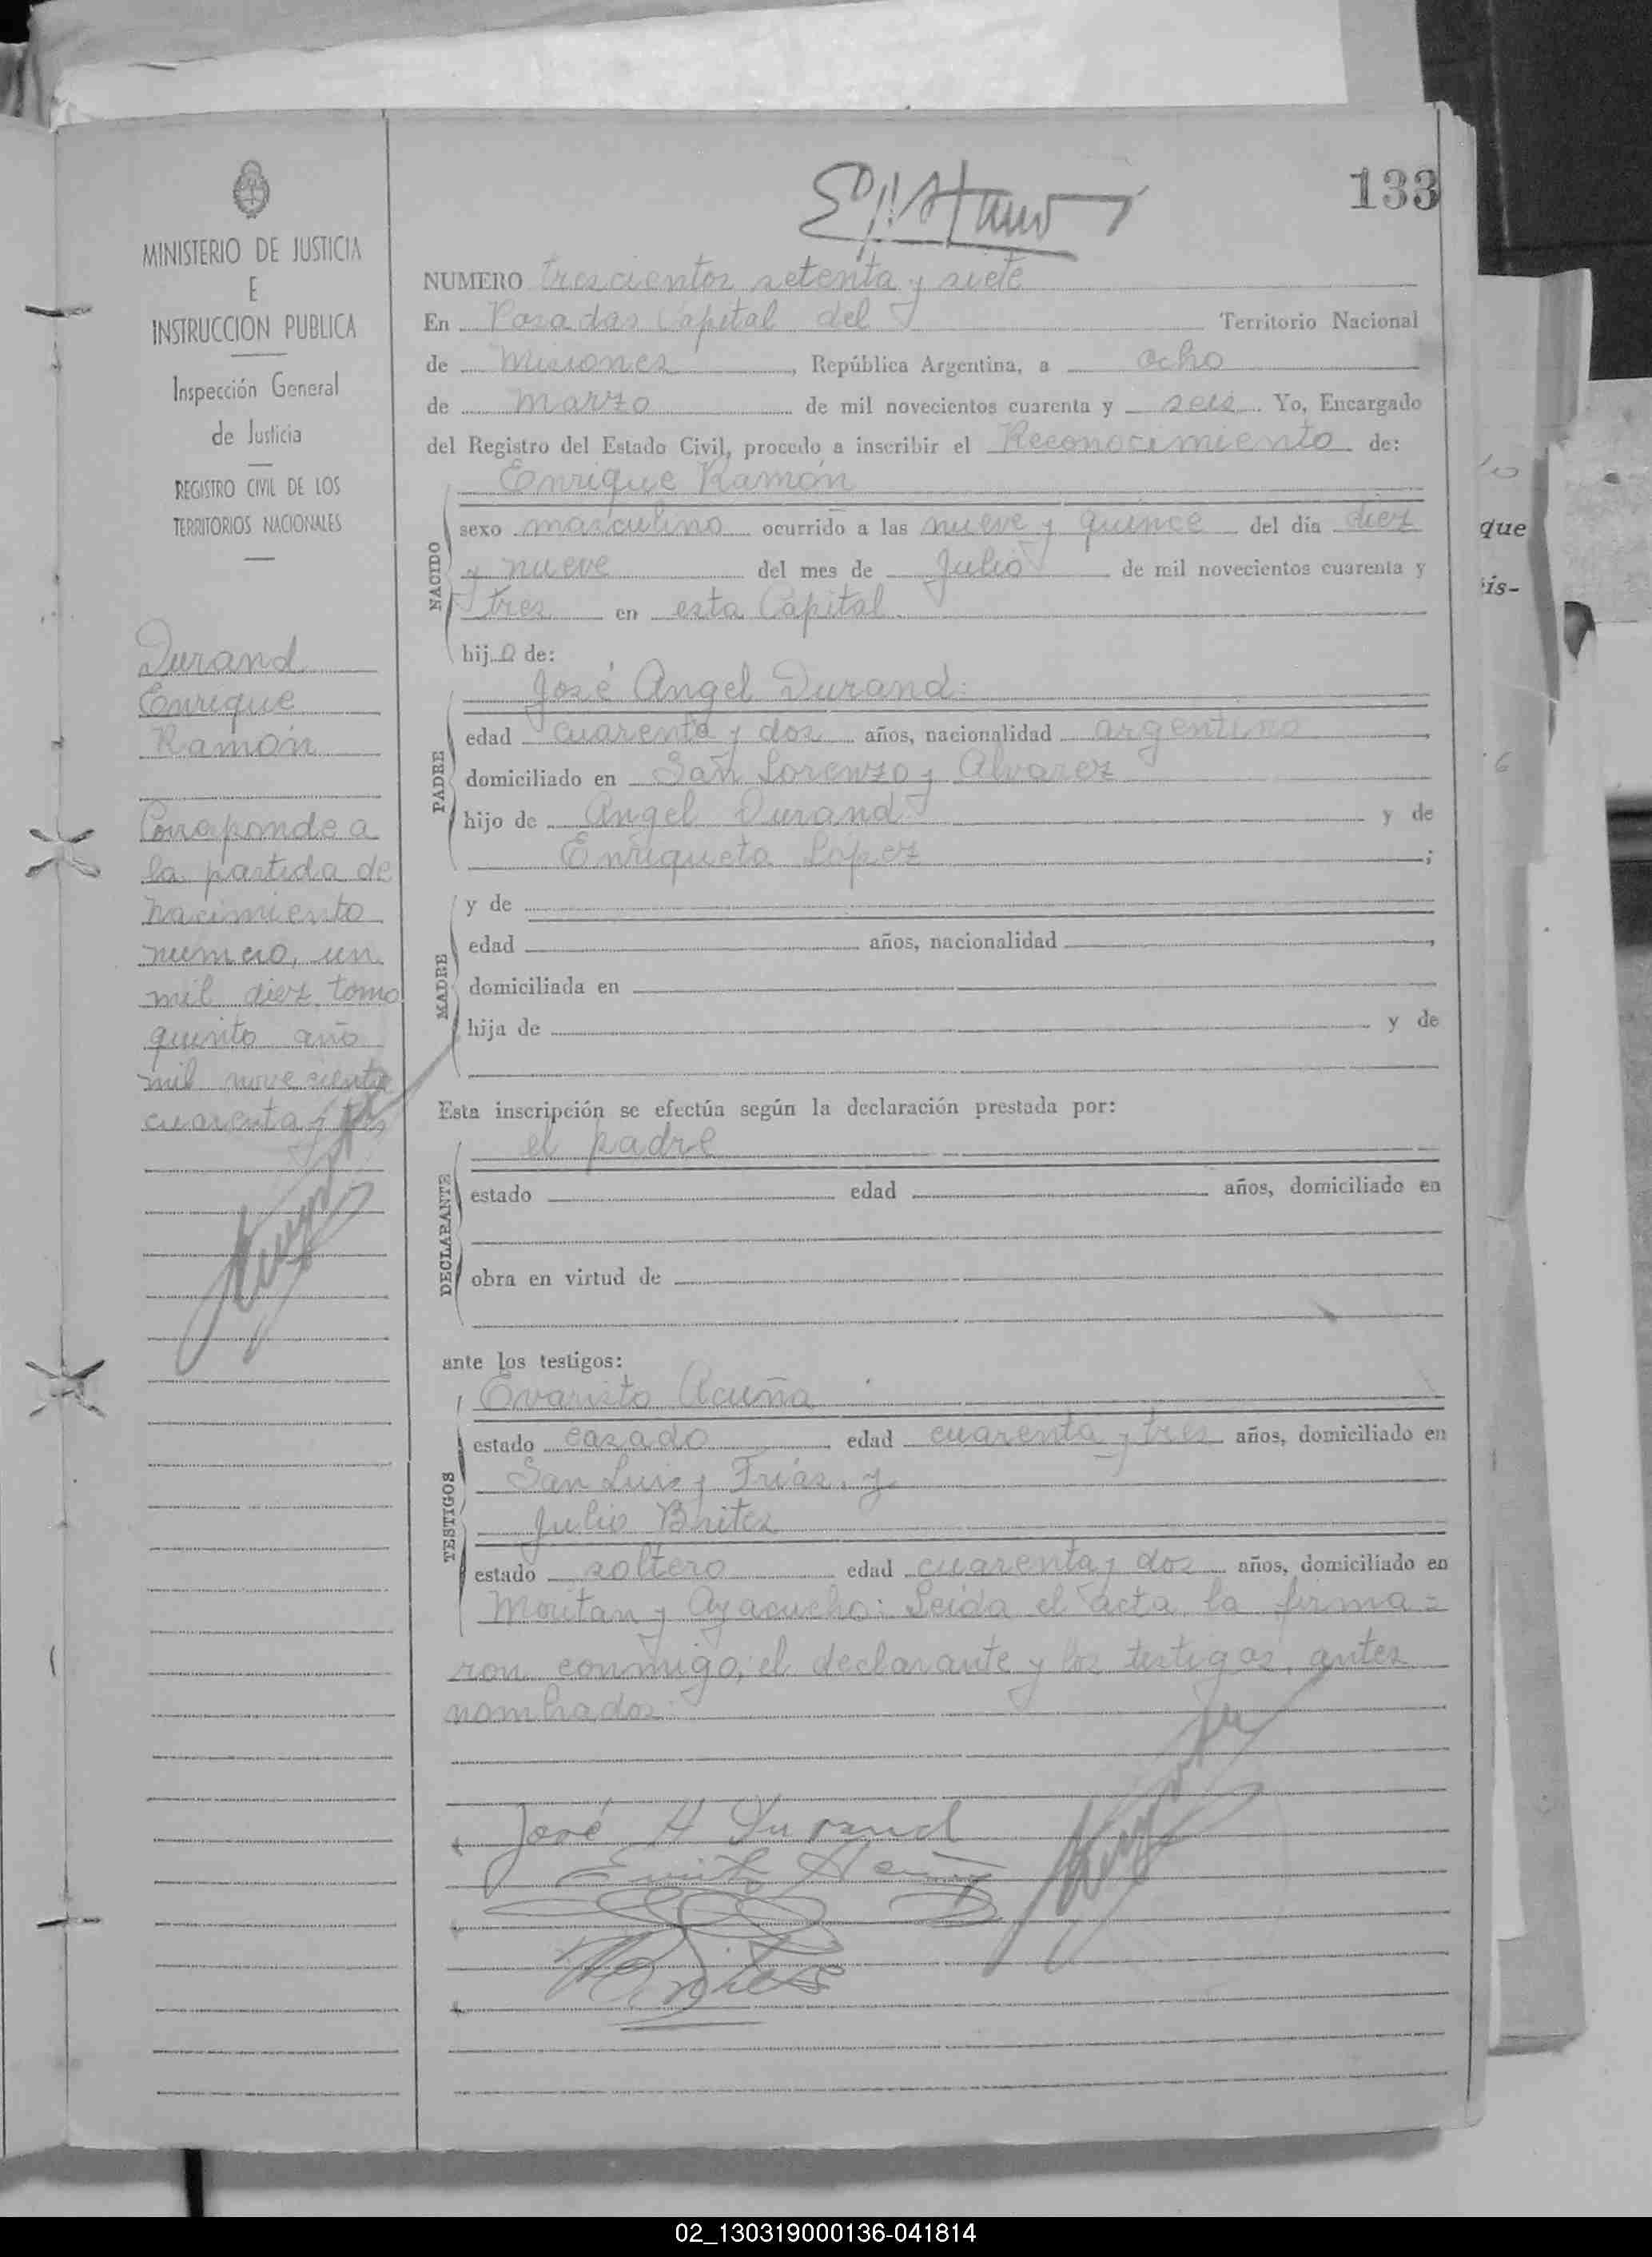 133
MINISTERIO DE JUSTICIA
E
INSTRUCCION PUBLICA
Inspección General
de Justicia
REGISTRO CIVIL DE LOS
TERRITORIOS NACIONALES
Durand
Enrique
Ramón
Corresponde a
la partida de
nacimiento
numero, un
mil diez tomo
quinto año
mil novecientos
cuarenta y tres
NUMERO trescientos setenta y siete
En Posadas Capital del Territorio Nacional
de Misiones, República Argentina, a ocho
de marzo de mil novecientos cuarenta y seis. Yo, Encargado
del Registro del Estado Civil, procedo a inscribir el Reconocimiento de:
Enrique Ramón
NACIDO
sexo masculino ocurrido a las nueve y quince del día diez
y nueve del mes de Julio de mil novecientos cuarenta y
tres en esta Capital
hijo de:
José Angel Durand
PADRE
edad cuarenta y dos años, nacionalidad argentino,
domiciliado en San Lorenzo y Alvarez
hijo de Angel Durand y de
Enriqueta Lopez;
MADRE
y de
edad años, nacionalidad,
domiciliada en
hija de y de
Esta inscripción se efectúa según la declaración prestada por:
el padre
DECLARANTE
estado edad años, domiciliado en
obra en virtud de
ante los testigos:
Evaristo Acuña
TESTIGOS
estado casado edad cuarenta y tres años, domiciliado en
San Luis y Frías, y
Julio Britez
estado soltero edad cuarenta y dos años, domiciliado en
Moritan y Ayacucho: Leida el acta la firma=
ron conmigo, el declarante y los testigos, antes
nombrados
José A Durand
que
is-
6
02_130319000136-041814